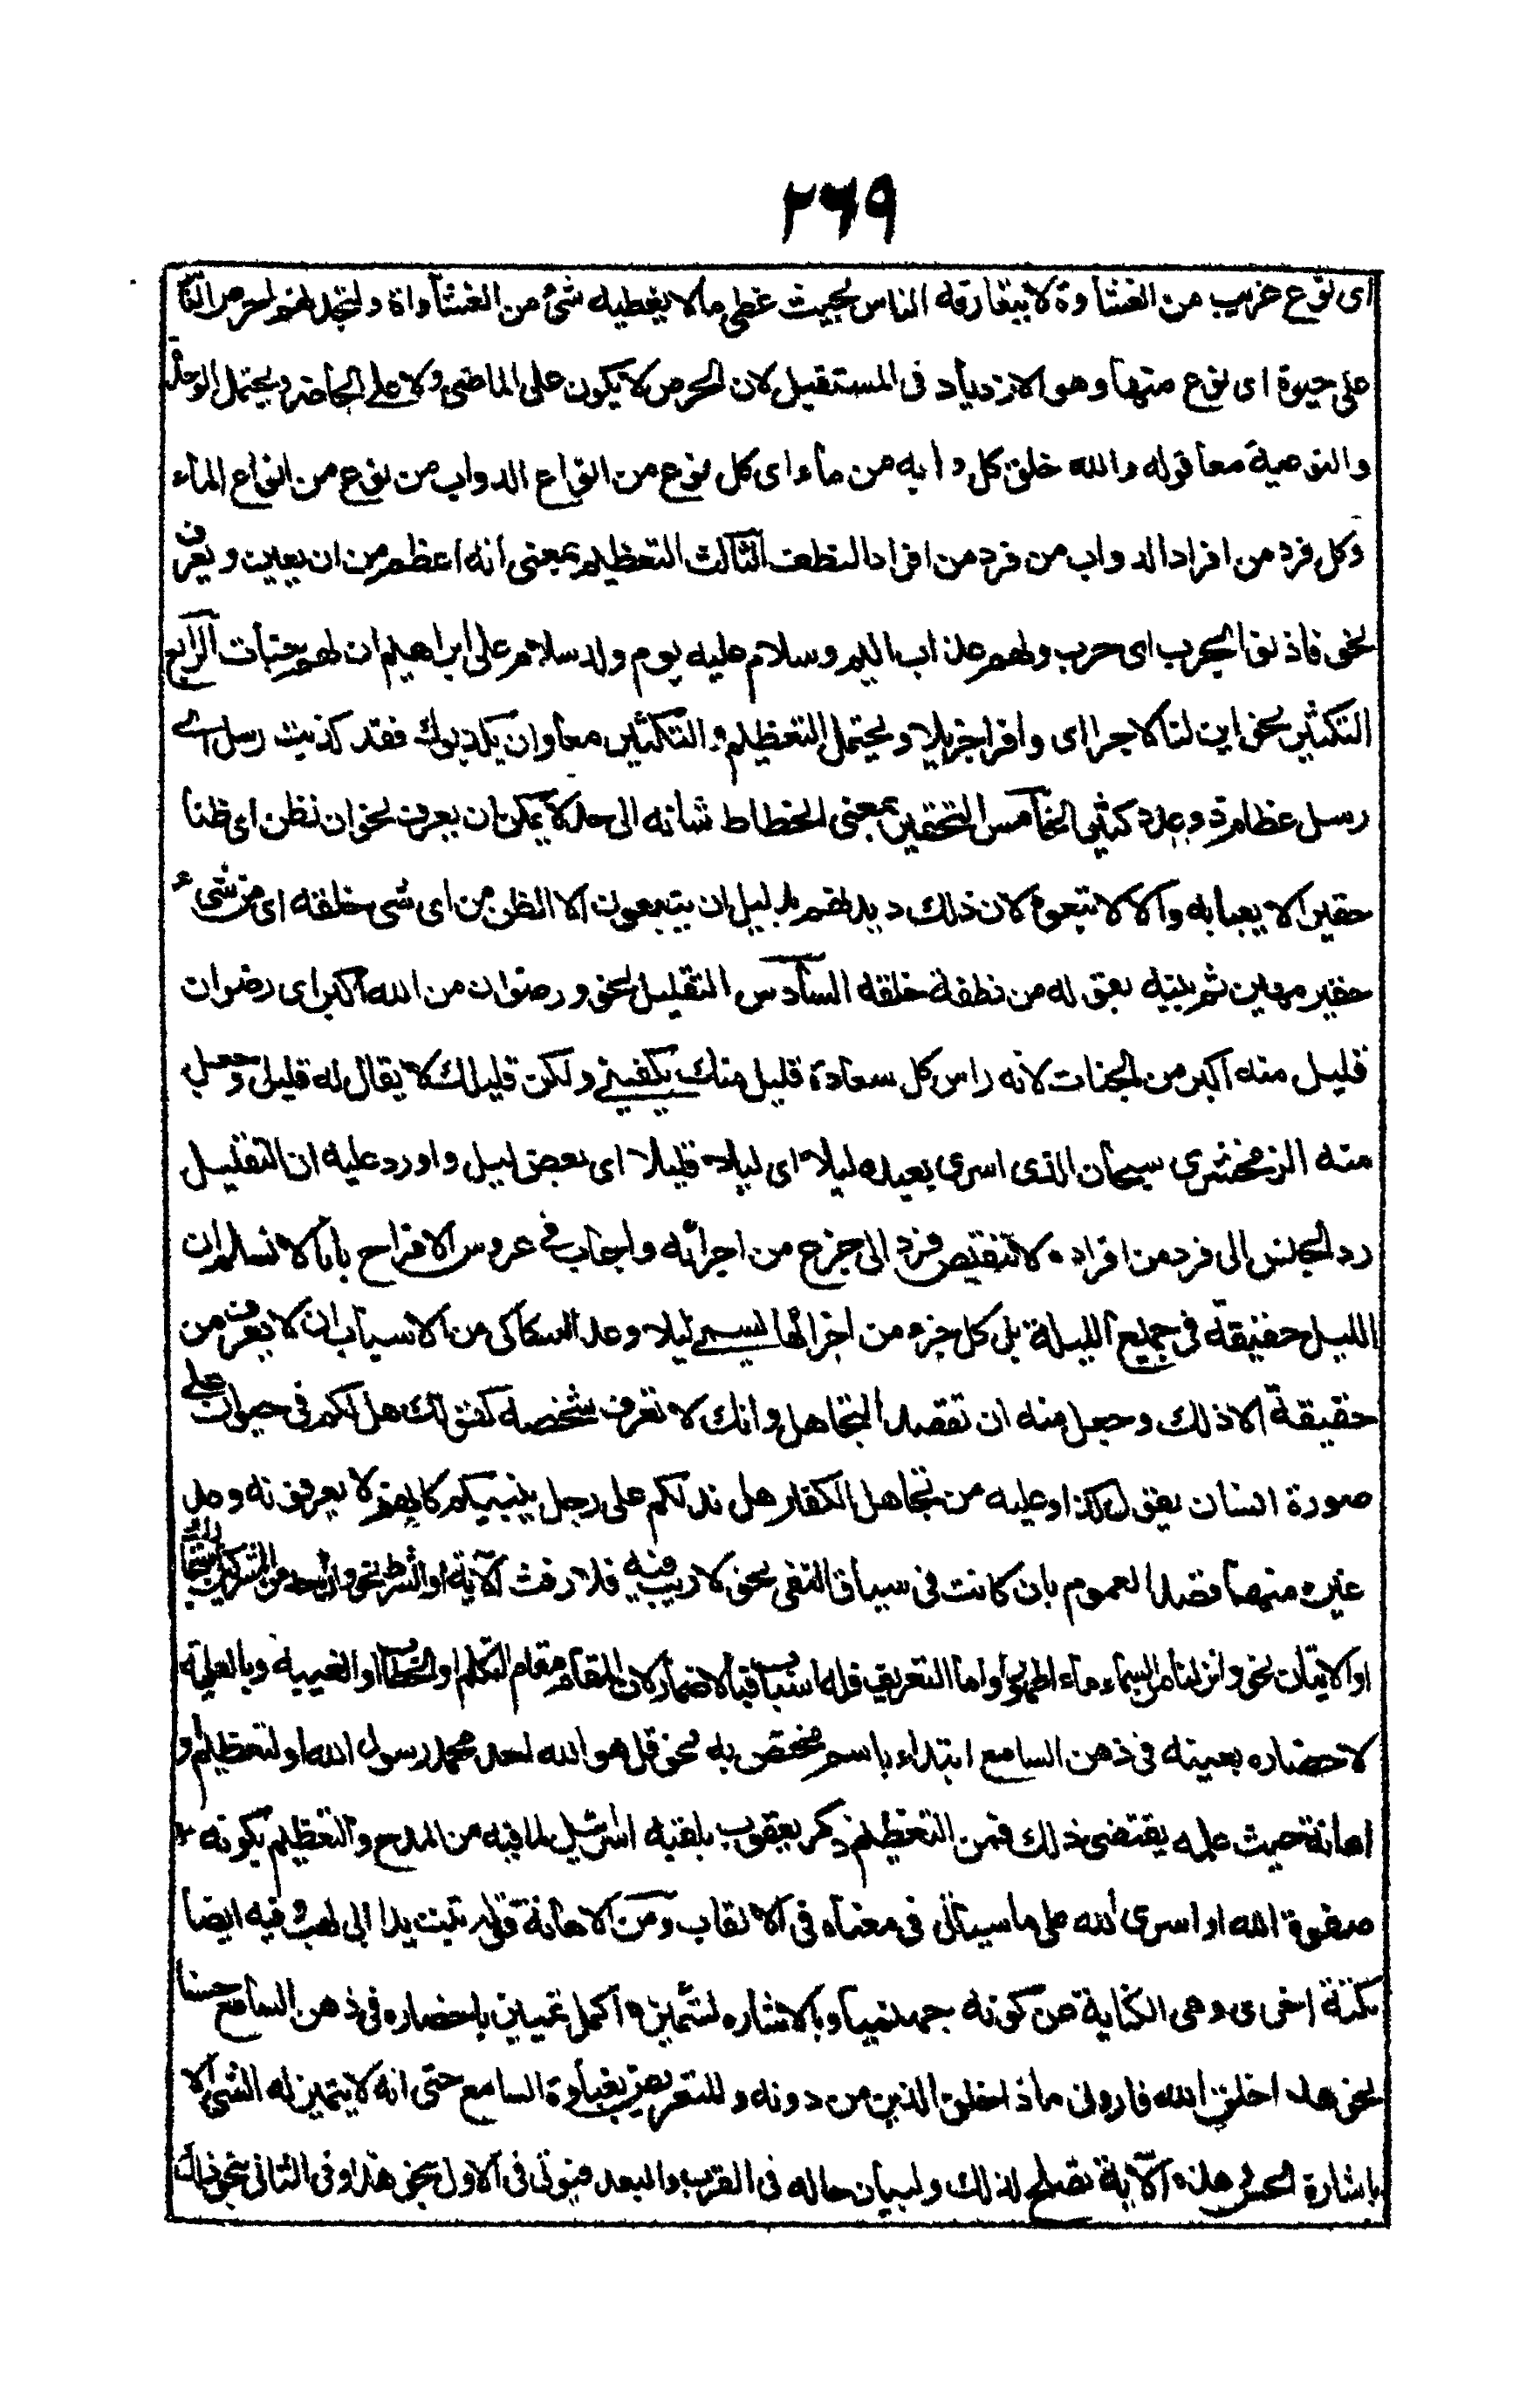 ٢٦٩
اى نوع غريب من الغشاوة لا يتعارفه الناس بحيث غطى ما لا يغطيه شئ من الغشاواة ولتجدنهم احرص النا
على حيوة اى نوع منها وهو الازدياد فى المستقبل لان الحرص لا يكون على الماضى ولا على الحاضر ويحتمل الوحدة
والنوعية معا قوله والله خلق كل دابه من ماء اى كل نوع من انواع الدواب من نوع من انواع الماء
وكل فرد من افراد الدواب من فرد من افراد النطف الثالث التعظيم بمعنى انه اعظم من ان يعين ويعرف
نحو فاذنوا بحرب اى حرب ولهم عذاب اليم وسلام عليه يوم ولد سلام على ابراهيم ان لهم جنات الرابع
التكثير نحو اين لنا لاجرا اى وافرا جزيلا ويحتمل التعظيم والتكثير معا وان يكذبوك فقد كذبت رسل اى
رسل عظام ذو عدد كثير الخامس التحقير بمعنى انحطاط شانه الى حد لا يمكن ان يعرف نحو ان نظن اى ظنا
حقيرا لا يعبا به والا لاتبعوه لان ذلك ديدنهم بدليل ان يتبعون الا الظن من اى شى خلقه اى من شىء
حقير مهين ثم بينه بقوله من نطفة خلقه السادس التقليل نحو ورضوان من الله اكبر اى رضوان
قليل منه اكبر من الجنات لانه راس كل سعادة قليل منك يكفينى ولكن قليلك لا يقال له قليل وجعل
منه الزمخشرى سبحان الذى اسرى بعبده ليلا اى ليلا قليلا اى بعض ليل واورد عليه ان التقليل
رد الجنس الى فرد من افراده لا تنقيص فرد الى جزء من اجزائه واجاب فى عروس الافراح بانا لا نسلم ان
الليل حقيقة فى جميع الليلة بل كل جزء من اجزائها يسمى ليلا وعد السكاكى من الاسباب ان لا يعرف من
حقيقة الا ذلك وجعل منه ان تقصد التجاهل وانك لا تعرف شخصه كقولك هل لكم فى حيوان على
صورة انسان يقول كذا وعليه من تجاهل الكفار هل ندلكم على رجل ينبيكم كانهم لا يعرفونه وعد
غيره منها قصد العموم بان كانت فى سياق النفى نحو لا ريب فيه فلا رفث الآية او الشرط نحو وان احد من المشركين استجارك
او الامتنان نحو وانزلنا من السماء ماء طهورا واما التعريف فله اسباب فبالاضمار لان المقام مقام التكلم او الخطاب او الغيبه وبالعلمية
لاحضاره بعينه فى ذهن السامع ابتداء باسم مختص به نحو قل هو الله احد محمد رسول الله او لتعظيم او
اهانة حيث علمه يقتضى ذلك فمن التعظيم ذكر يعقوب بلقبه اسرائيل لما فيه من المدح والتعظيم بكونه
صفوة الله او اسرى الله على ما سياتى فى معناه فى الالقاب ومن الاهانة قوله تبت يدا ابى لهب وفيه ايضا
نكتة اخرى وهى الكناية عن كونه جهنميا وبالاشاره لتمييزه اكمل تمييز باحضاره فى ذهن السامع حسا
نحو هذا خلق الله فارونى ماذا خلق الذين من دونه وللتعريض بغباوة السامع حتى انه لا يتميز له الشئ الا
باشارة الحس هذه الآية تصلح لذلك ولبيان حاله فى القرب والبعد فيوتى فى الاول بنحو هذا وفى الثانى بنحو ذلك